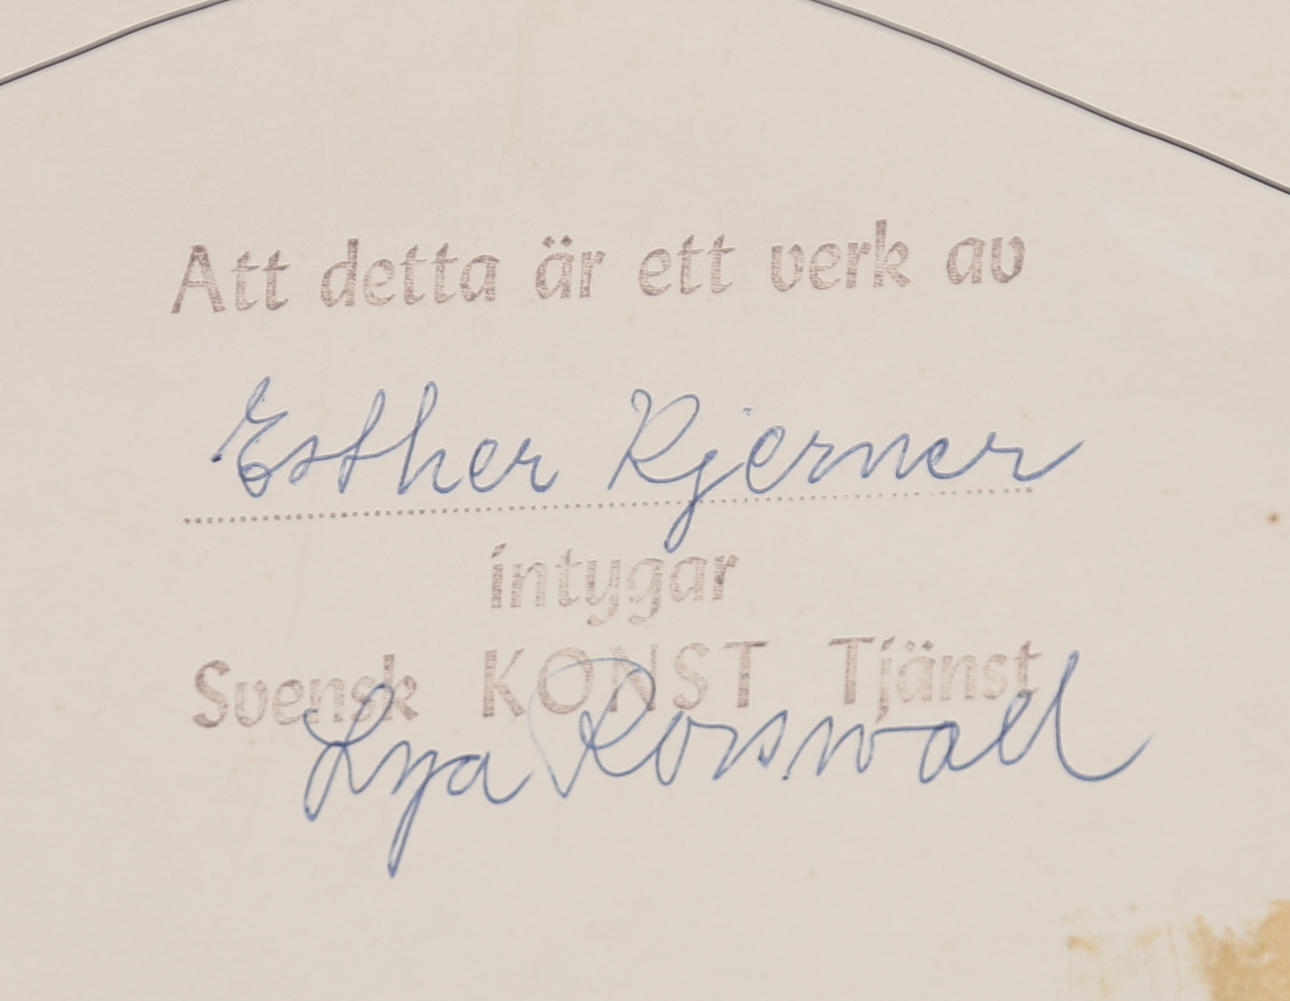 Att detta är ett verk av
Esther Kjerner
intygar
Svensk KONST Tjänst
Lya Rosswall